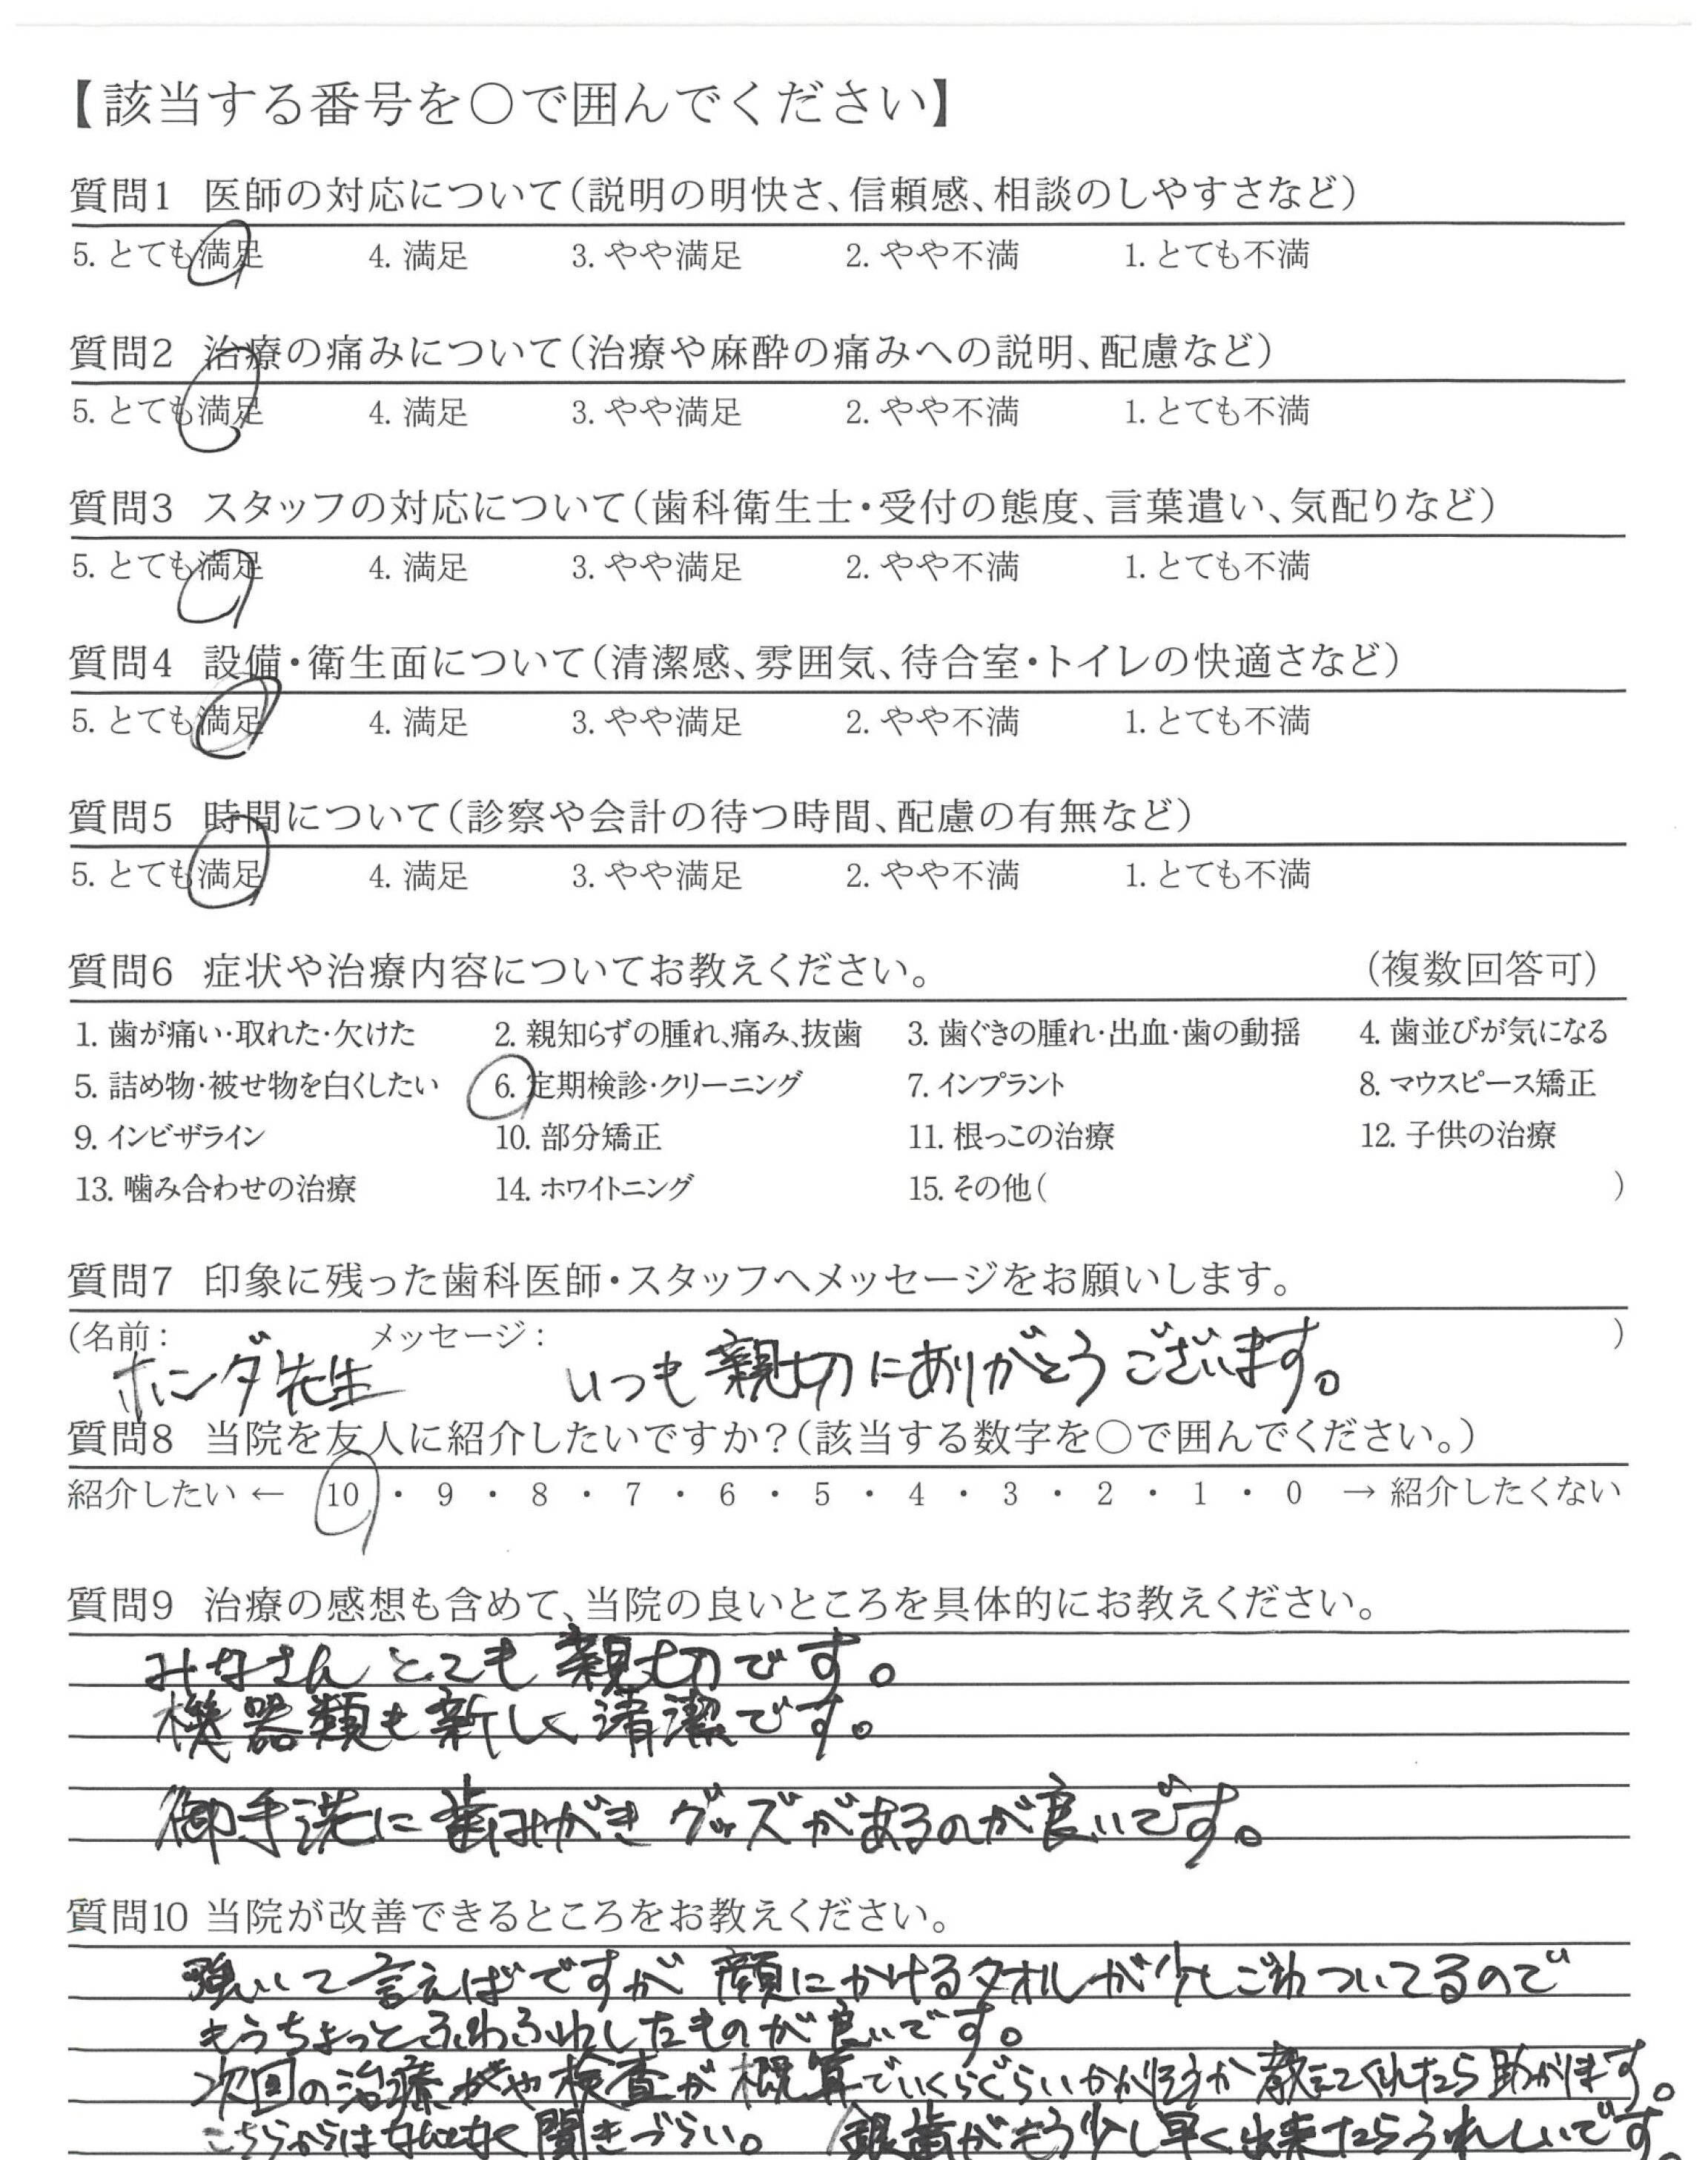 【該当する番号を〇で囲んでください】
質問1 医師の対応について(説明の明快さ、信頼感、相談のしやすさなど)
5. とても満足 4. 満足 3. やや満足 2. やや不満 1. とても不満
質問2 治療の痛みについて(治療や麻酔の痛みへの説明、配慮など)
5. とても満足 4. 満足 3. やや満足 2. やや不満 1. とても不満
質問3 スタッフの対応について(歯科衛生士・受付の態度、言葉遣い、気配りなど)
5. とても満足 4. 満足 3. やや満足 2. やや不満 1. とても不満
質問4 設備・衛生面について(清潔感、雰囲気、待合室・トイレの快適さなど)
5. とても満足 4. 満足 3. やや満足 2. やや不満 1. とても不満
質問5 時間について(診察や会計の待つ時間、配慮の有無など)
5. とても満足 4. 満足 3. やや満足 2. やや不満 1. とても不満
質問6 症状や治療内容についてお教えください。 (複数回答可)
1. 歯が痛い・取れた・欠けた 2. 親知らずの腫れ、痛み、抜歯 3. 歯ぐきの腫れ・出血・歯の動揺 4. 歯並びが気になる
5. 詰め物・被せ物を白くしたい 6. 定期検診・クリーニング 7. インプラント 8. マウスピース矯正
9. インビザライン 10. 部分矯正 11. 根っこの治療 12. 子供の治療
13. 噛み合わせの治療 14. ホワイトニング 15. その他( )
質問7 印象に残った歯科医師・スタッフへメッセージをお願いします。
(名前: メッセージ: )
ホンダ先生 いつも親切にありがとうございます。
質問8 当院を友人に紹介したいですか?(該当する数字を〇で囲んでください。)
紹介したい ← 10 ・ 9 ・ 8 ・ 7 ・ 6 ・ 5 ・ 4 ・ 3 ・ 2 ・ 1 ・ 0 → 紹介したくない
質問9 治療の感想も含めて、当院の良いところを具体的にお教えください。
みなさんとても親切です。
機器類も新しく清潔です。
御手洗に歯みがきグッズがあるのが良いです。
質問10 当院が改善できるところをお教えください。
強いて言えばですが 顔にかけるタオルが少しごわついてるので
もうちょっとふわふわしたものが良いです。
次回の治療や検査が概算でいくらぐらいかかりそうか教えてくれたら助かります。
こちらからはなんとなく聞きづらい。 銀歯がもう少し早く出来たらうれしいです。